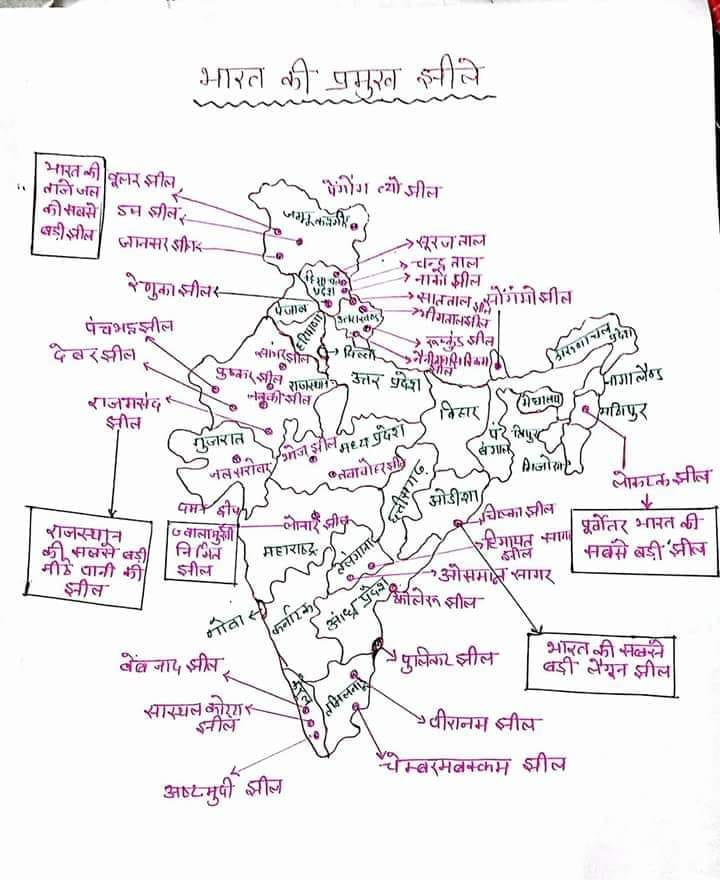 भारत की प्रमुख झीले
भारत की
ताजे जल
की सबसे
बड़ी झील
वूलर झील
डल झील
पेंगोंग त्सो झील
जम्मू कश्मीर
सूरज ताल
चन्द्र ताल
नाको झील
सातताल झील
भीमताल झील
रूपकुंड झील
झील
सोंगमो झील
रेणुका झील
हिमाचल
प्रदेश
पंजाब
उत्तराखण्ड
हरियाणा
दिल्ली
पंचभद्र झील
देबर झील
राजमसंद
झील
सांभर झील
पुष्कर झील
नक्की झील
राजस्थान
उत्तर प्रदेश
बिहार
अरूणाचल प्रदेश
नागालैण्ड
मेघालय
मणिपुर
त्रिपुरा
मिजोरम
पं
बंगाल
गुजरात
नल सरोवर
भोज झील
मध्य प्रदेश
तवावोहर झील
छत्तीसगढ़
ओडीशा
लोकटक झील
पूर्वोतर भारत की
सबसे बड़ी झील
राजस्थान
की सबसे बड़ी
मीठे पानी की
झील
ज्वालामुखी
निर्मित
झील
लोनार झील
महाराष्ट्र
तेलंगाना
चिल्का झील
हिमायत सागर
झील
ओसमान सागर
कोलेरू झील
गोवा
कर्नाटक
आंध्र प्रदेश
भारत की सबसे
बड़ी लैगून झील
पुलिकट झील
केरल
तमिलनाडु
वेंबनाद झील
झील
अष्टमुदी झील
वीरानम झील
चेम्बरमबक्कम झील